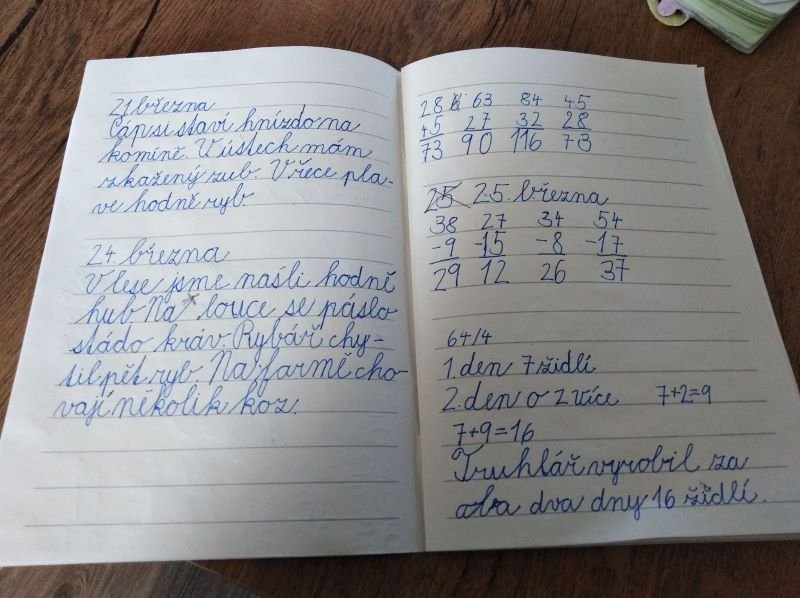 21. března
Čáp si staví hnízdo na
komíně. V ústech mám
zkažený zub. V řece pla-
ve hodně ryb.
24. března
V lese jsme našli hodně
hub Na louce se páslo
stádo kráv. Rybář chy-
til pět ryb. Na farmě cho-
vají několik koz.
28 63 84 45
45 27 32 28
73 90 116 73
25 25. března
38 27 34 54
-9 -15 -8 -17
29 12 26 37
64/4
1. den 7 židlí
2. den o 2 více 7+2=9
7+9=16
Truhlář vyrobil za
dva dny 16 židlí.